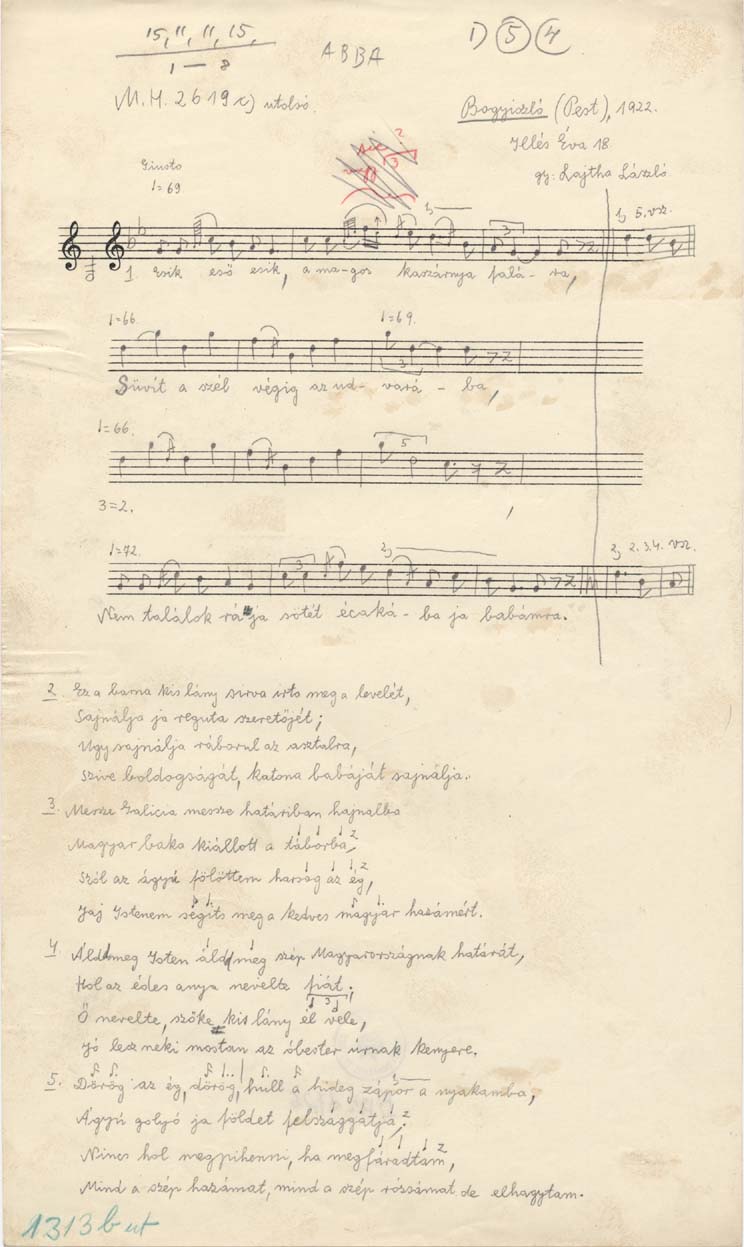 15, 11, 11, 15,
1 — 8
ABBA
1) 5 4
M.H. 2619 c) utolsó.
Bogyiszló (Pest), 1922.
Illés Éva 18
gy: Lajtha László
Giusto
♩=69
1, 5. vsz.
1 Esik eső esik, a ma-gos kaszárnya falá-ra,
♩=66. ♩=69.
Süvít a szél végig az ud-vará-ba,
♩=66.
3=2.
♩=72.
2, 2. 3. 4. vsz.
Nem találok rá ja sötét écaká-ba ja babámra.
2. Ez a barna kis lány sirva irta meg a levelét,
Sajnálja ja reguta szeretőjét;
Ugy sajnálja ráborul az asztalra,
Szive boldogságát, katona babáját sajnálja.
3. Messze Galicia messze határiban hajnalba
Magyar baka kiállott a táborba,
Szól az ágyú fölöttem harsog az ég,
Jaj Istenem segíts meg a kedves magyar hazámért.
4 Áldd meg Isten áldd meg szép Magyarországnak határát,
Hol az édes anya nevelte fiát;
Ő nevelte, szőke kis lány él véle,
Jó lesz neki mostan az óbester úrnak kenyere.
5. Dörög az ég, dörög, hull a hideg zápor a nyakamba,
Ágyú golyó ja földet felszaggátja;
Nincs hol megpihenni, ha megfáradtam,
Mind a szép hazámat, mind a szép rózsámat de elhagytam.
1313b ut